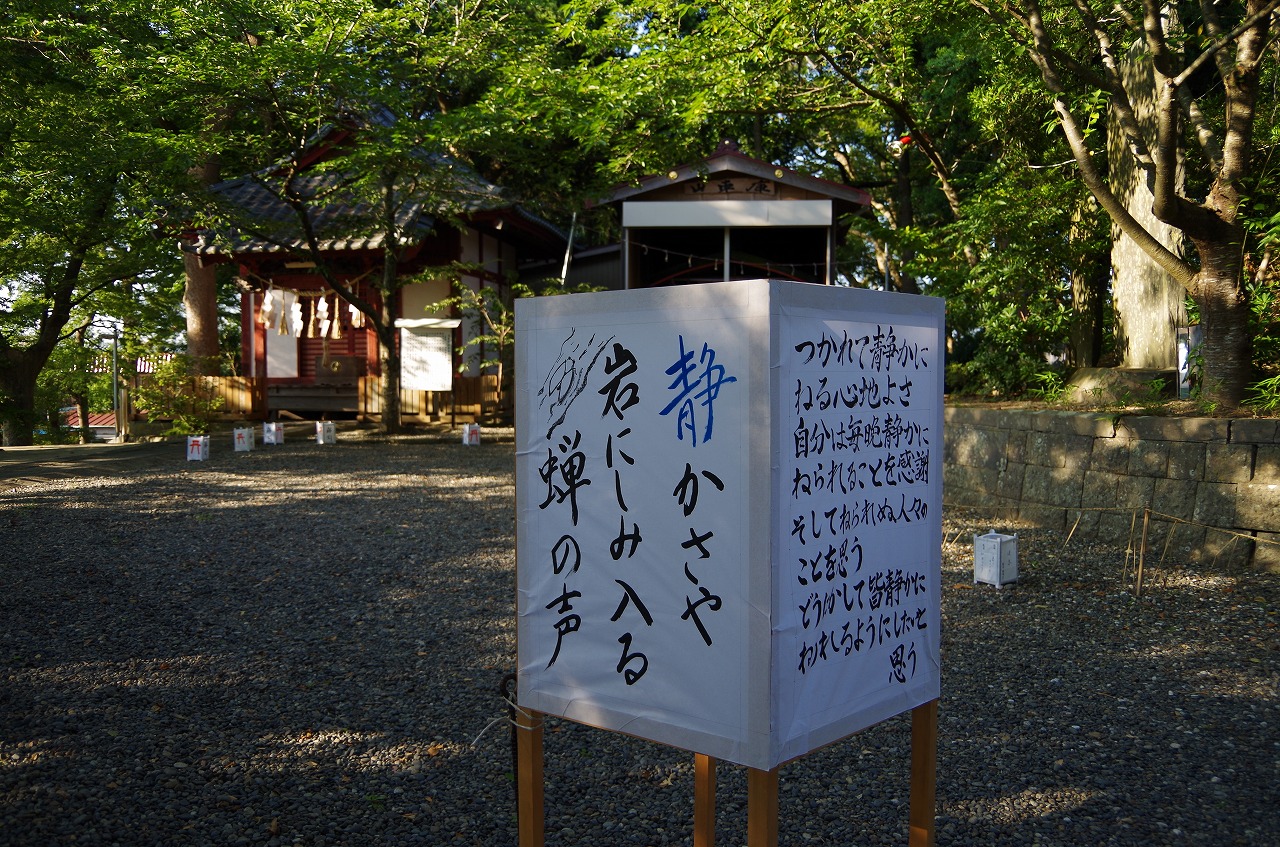 静かさや
岩にしみ入る
蝉の声
つかれて静かに
ねる心地よさ
自分は毎晩静かに
ねられることを感謝
そしてねられぬ人々の
ことを思う
どうかして皆静かに
ねれしるようにしたいと
思う